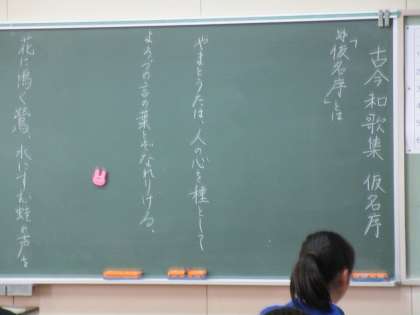 古今和歌集 仮名序
め「仮名序」とは
やまとうたは、人の心を種として
よろづの言の葉とぞなれりける。
花に鳴く鶯、水にすむ蛙の声を